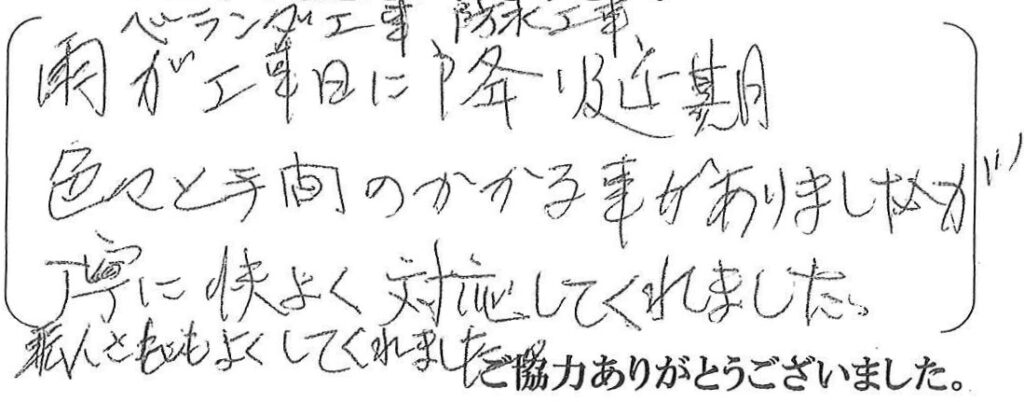 ベランダ工事 防水工事
雨が工事日に降り延期
色々と手間のかかる事がありましたが
丁寧に快よく対応してくれました。
職人さともよくしてくれました。
ご協力ありがとうございました。